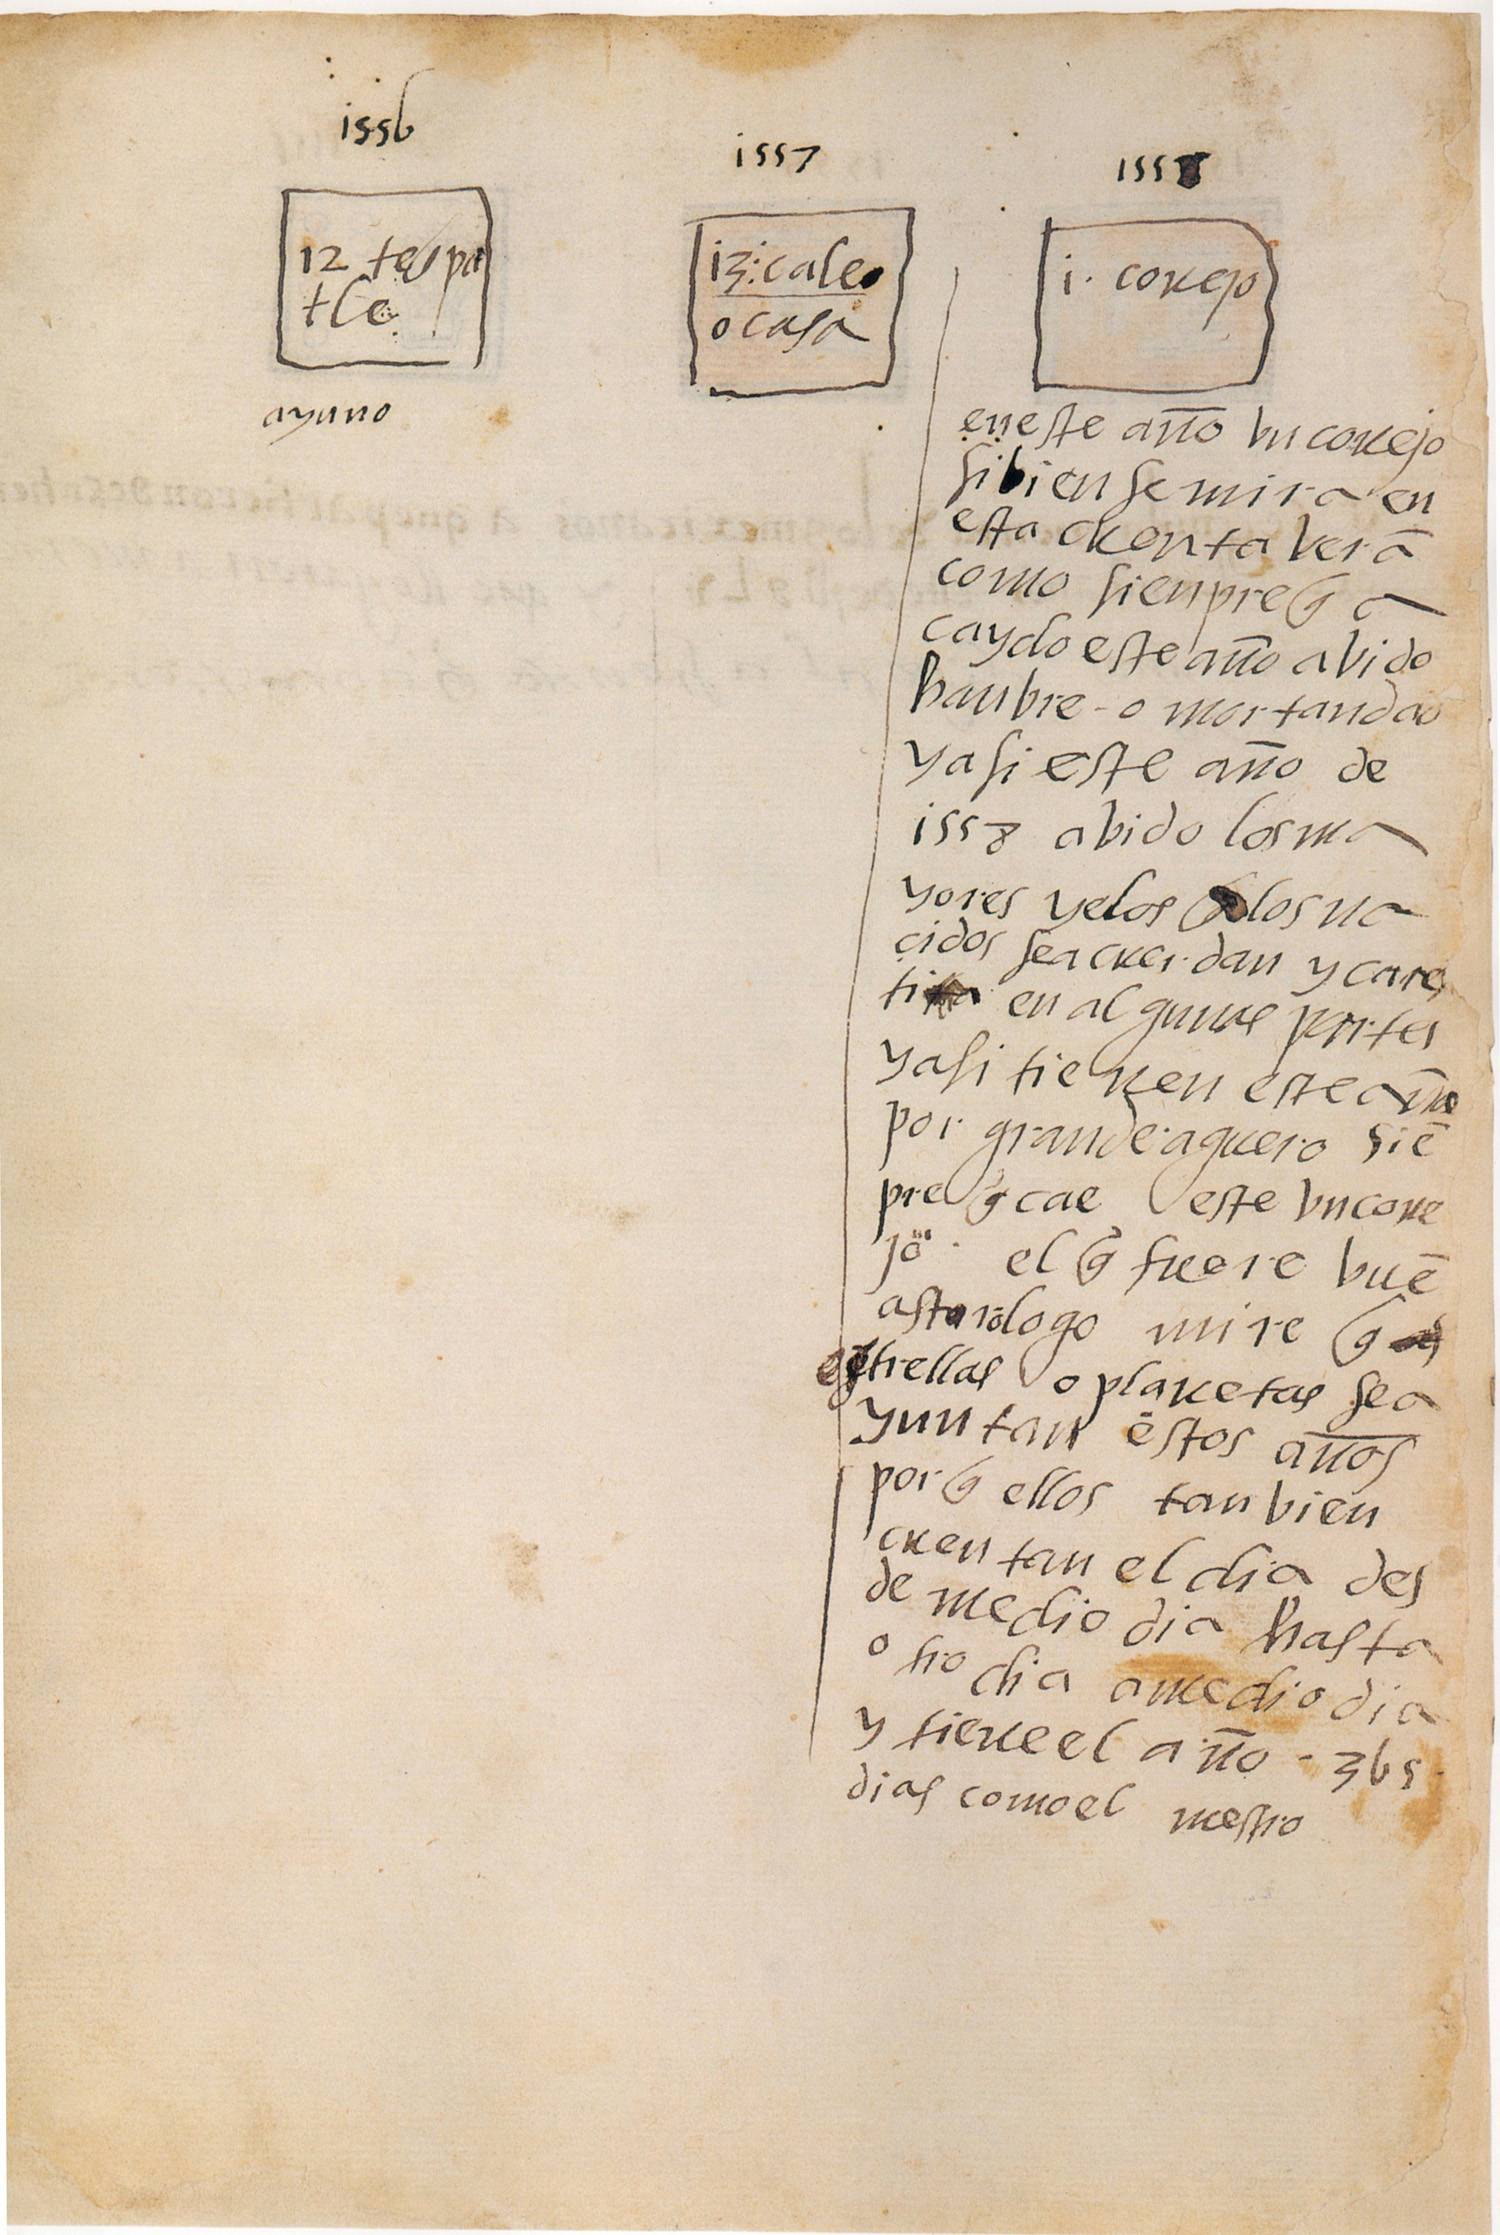 1556
1557
1558
12 tespa
tle
13: cale
o casa
1. conejo
ayuno
en este año vn conejo
si bien se mira en
esta cuenta verā
como sienpre q̄ a
caydo este año abido
hanbre - o mortandad
y asi este año de
1558 abido los ma
yores yelos q̄ los na
çidos se acuerdan y cares
tia en algunas partes
y asi tienen este año
por grande aguero siē
pre q̄ cae este vn cone
jo. el q̄ fuere buē
astorologo mire q̄
estrellas o planetas se a
yuntan estos años
porq̄ ellos tanbien
cuentan el dia des
de medio dia hasta
otro dia a medio dia
y tiene el año - 365
dias como el nuestro